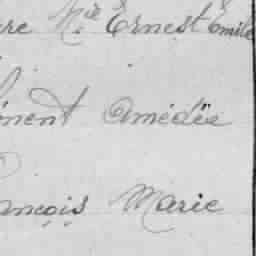 re N.ie Ernest Emile
ément Amédée
ançois Marie